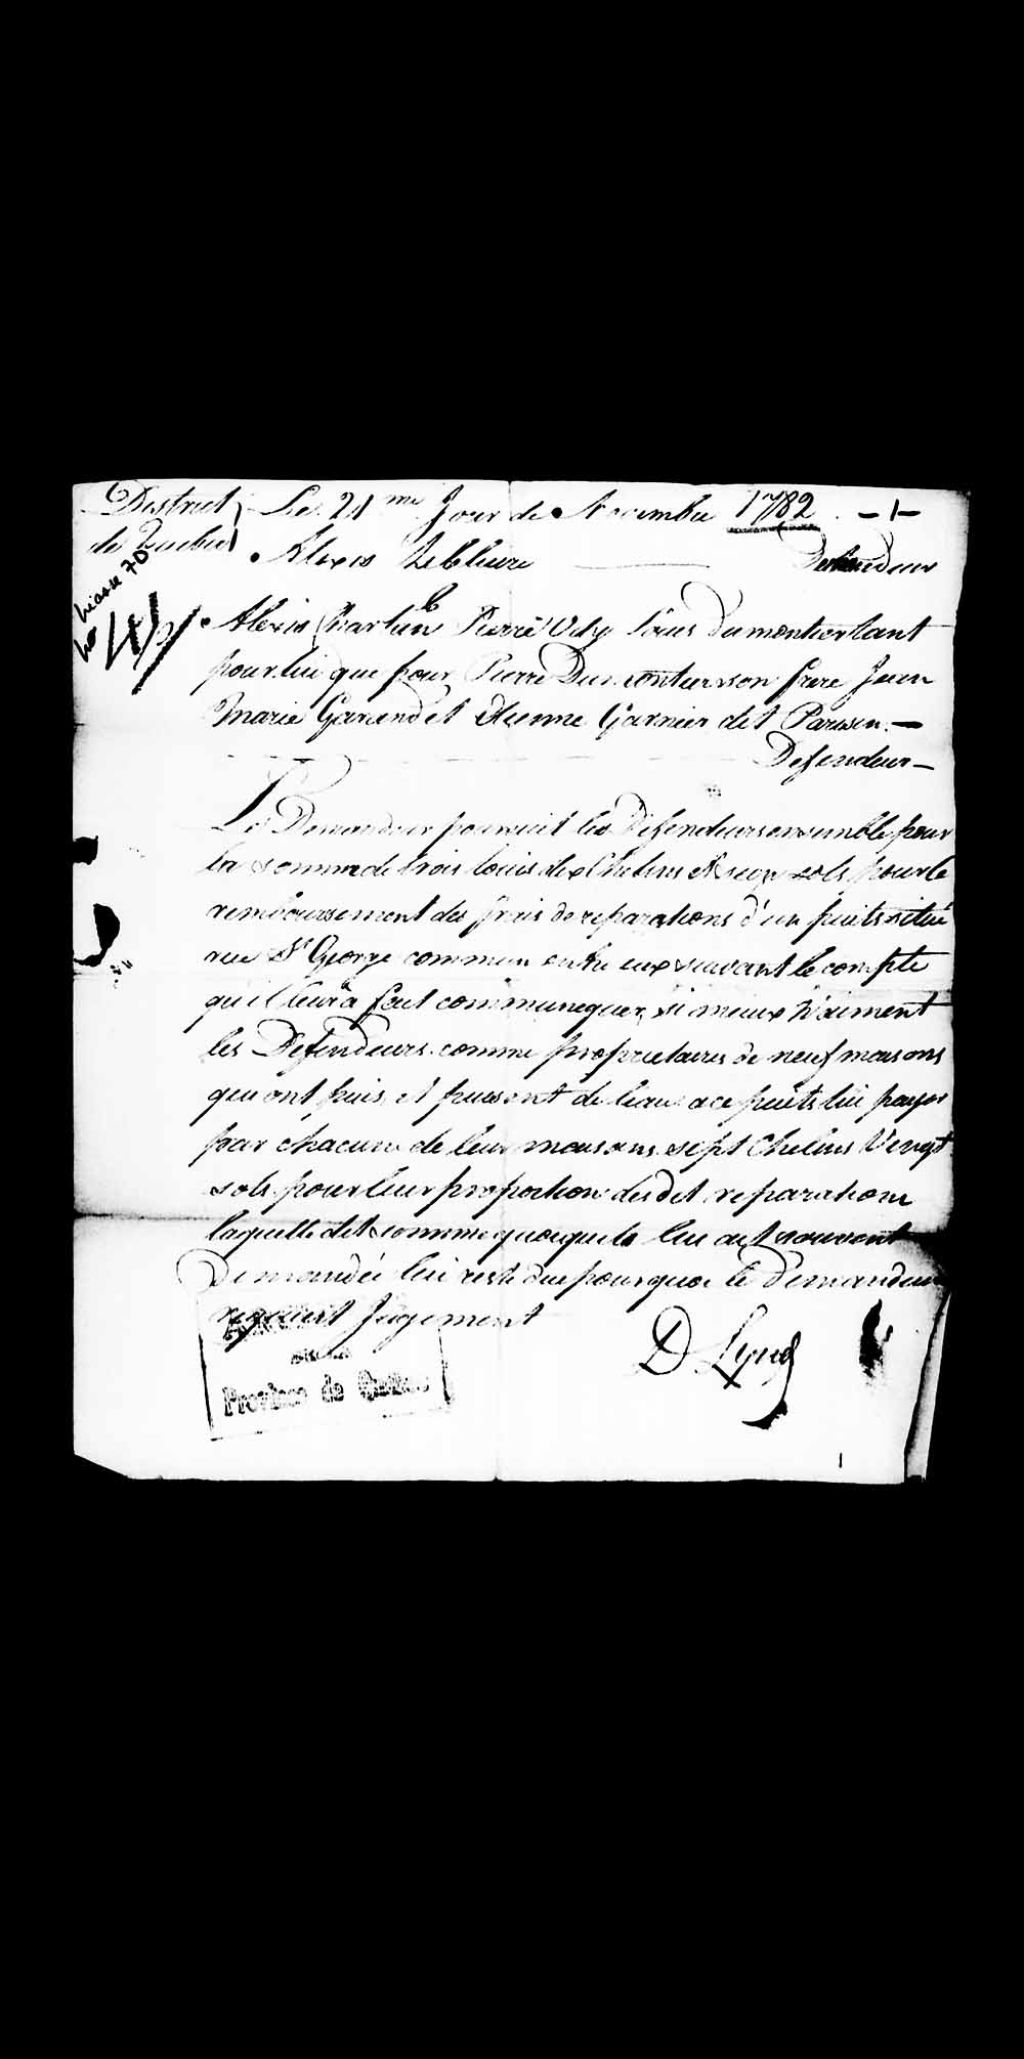 District } Le 21me Jour de Novembre 1782 . - 1 -
de Quebec
Alexis Lefebvre Demandeur
liasse 70
Alexis Charlan Pierre Louis Dumontier tant
pour lui que pour Pierre Dumontier son frere Jean
Marie Garand et Etienne Garnier dit Parisien. —
Defendeur —
Le Demandeur poursuit les Defendeurs ensemble pour
la somme de trois louis dix Chelins et sols pour le
remboursement des frais de reparations d'un puits situé
rue St George commun entre eux suivant le compte
qu'il leur a fait communiquer, si mieux n'aiment
les Defendeurs comme proprietaires de neuf maisons
qui ont puisé et puisent de l'eau a ce puits lui payer
par chacune de leur maisons sept Chelins Vingt
sols pour leur proportion des dit reparations
laquelle dit somme quoiqu'ils lui ait souvent
Demandée lui reste due pourquoi le Demandeur
requiert Jugement
D. Lynd
Province de Québec